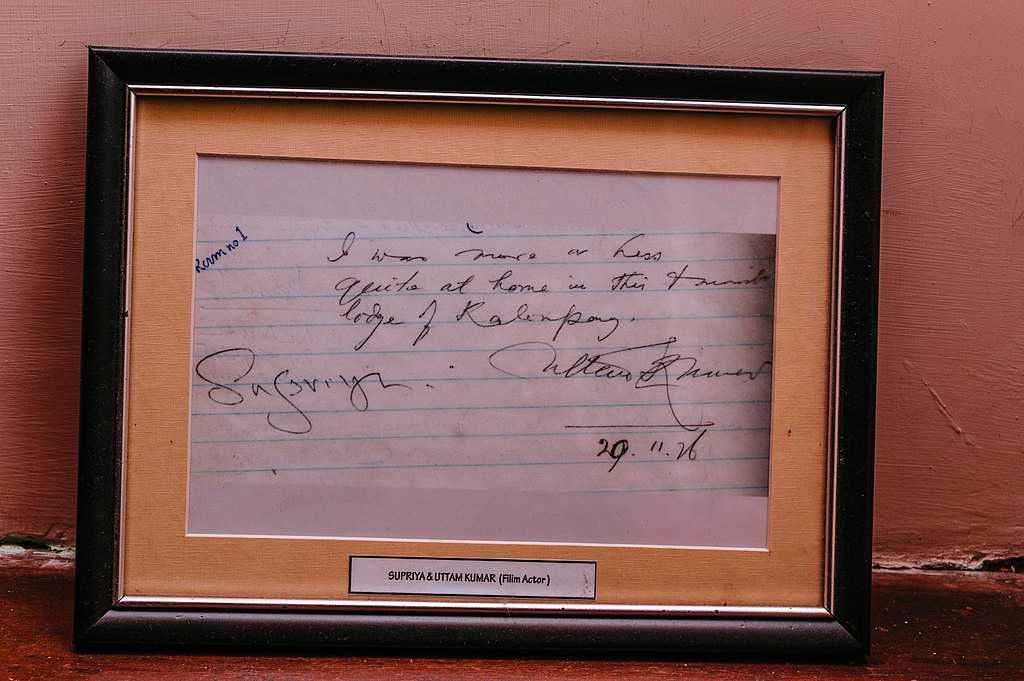 Room no 1
I was more or less
quite at home in this tourist
lodge of Kalimpong.
Supriya
Uttam Kumar
29.11.76
SUPRIYA & UTTAM KUMAR (Filim Actor)